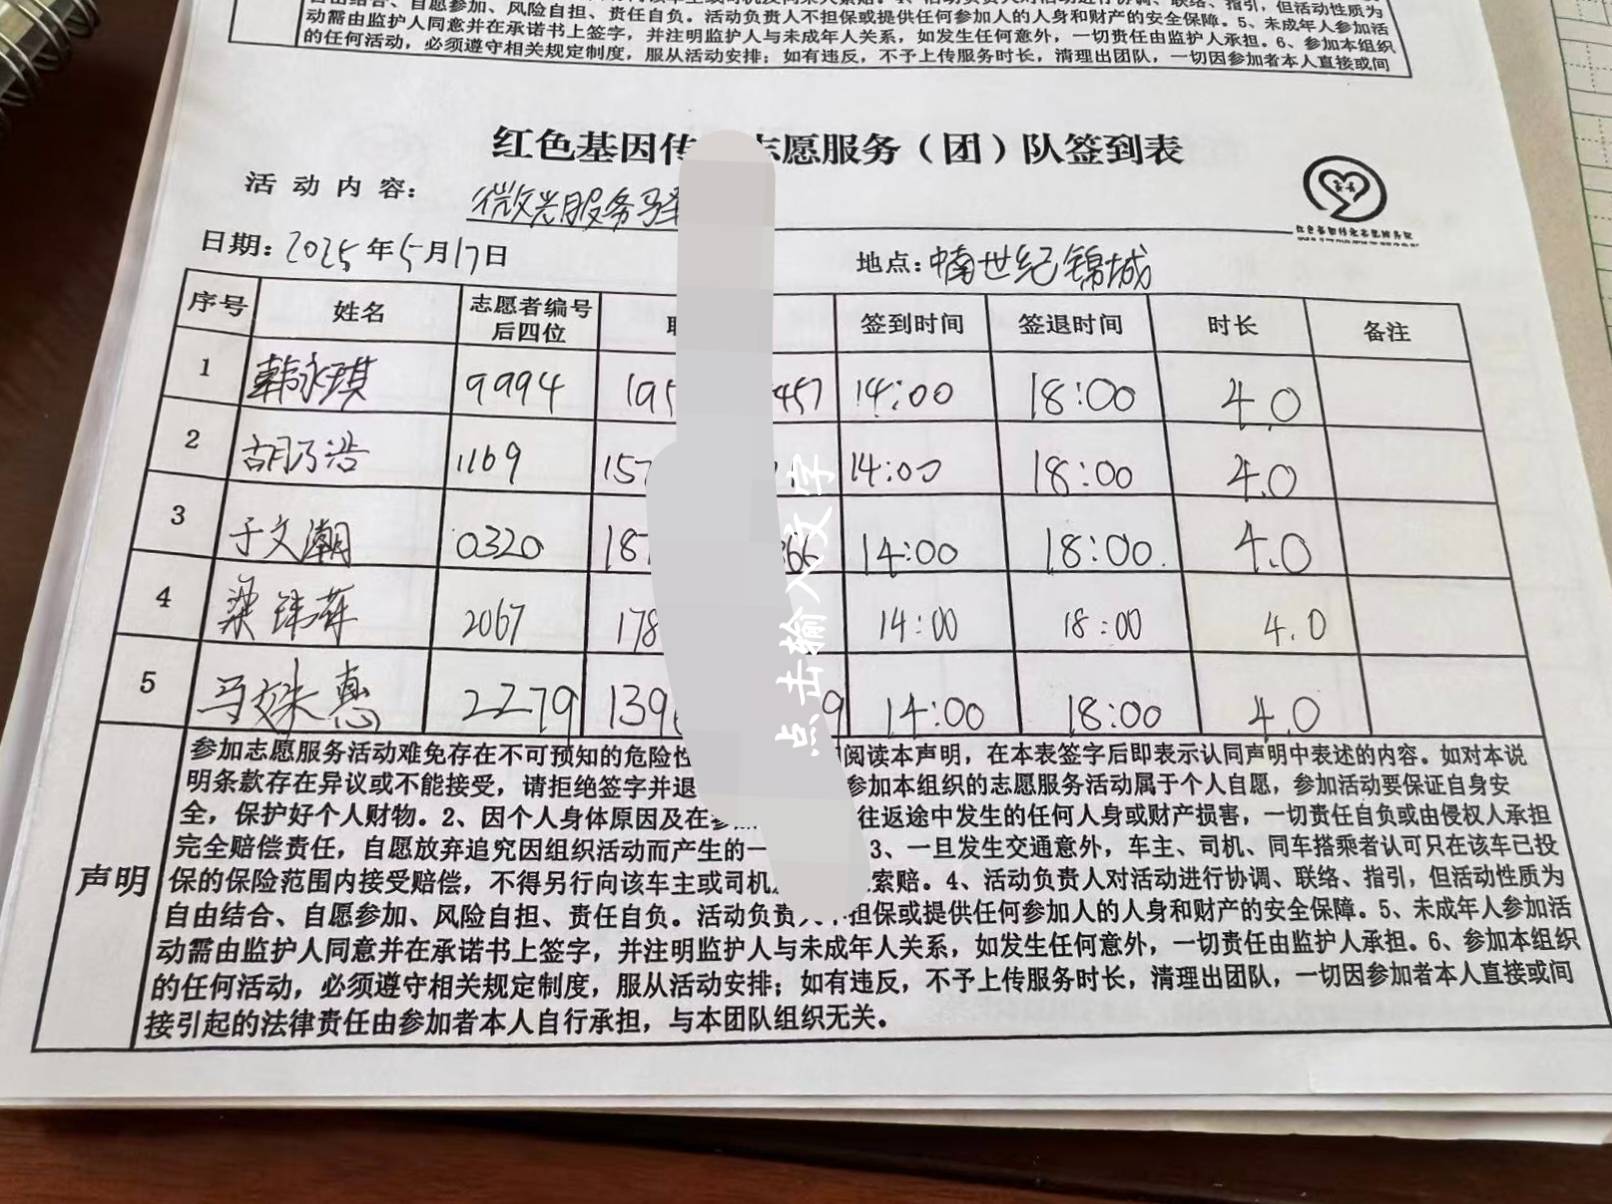 动需由监护人同意并在承诺书上签字，并注明监护人与未成年人关系，如发生任何意外，一切责任由监护人承担。6、参加本组织
的任何活动，必须遵守相关规定制度，服从活动安排；如有违反，不予上传服务时长，清理出团队，一切因参加者本人直接或间
红色基因传 志愿服务（团）队签到表
活动内容： 微光服务驿
日期：2025年5月17日 地点：中南世纪锦城
序号 姓名 志愿者编号后四位 签到时间 签退时间 时长 备注
1 韩永琪 9994 195 457 14:00 18:00 4.0
2 胡乃浩 1169 157 14:00 18:00 4.0
3 于文潮 0320 187 366 14:00 18:00 4.0
4 梁 2067 178 14:00 18:00 4.0
5 马姝惠 2279 139 9 14:00 18:00 4.0
点击输入文字
声明
参加志愿服务活动难免存在不可预知的危险性 阅读本声明，在本表签字后即表示认同声明中表述的内容。如对本说
明条款存在异议或不能接受，请拒绝签字并退 参加本组织的志愿服务活动属于个人自愿，参加活动要保证自身安
全，保护好个人财物。2、因个人身体原因及在参 往返途中发生的任何人身或财产损害，一切责任自负或由侵权人承担
完全赔偿责任，自愿放弃追究因组织活动而产生的一 3、一旦发生交通意外，车主、司机、同车搭乘者认可只在该车已投
保的保险范围内接受赔偿，不得另行向该车主或司机 索赔。4、活动负责人对活动进行协调、联络、指引，但活动性质为
自由结合、自愿参加、风险自担、责任自负。活动负责人不担保或提供任何参加人的人身和财产的安全保障。5、未成年人参加活
动需由监护人同意并在承诺书上签字，并注明监护人与未成年人关系，如发生任何意外，一切责任由监护人承担。6、参加本组织
的任何活动，必须遵守相关规定制度，服从活动安排；如有违反，不予上传服务时长，清理出团队，一切因参加者本人直接或间
接引起的法律责任由参加者本人自行承担，与本团队组织无关。